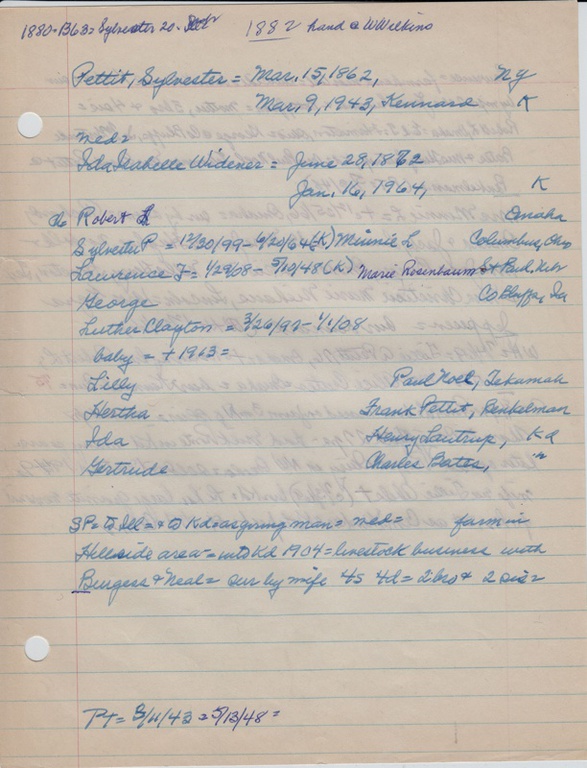 1880 - B63 = Sylvester 20 -
1882 hand a WWilkins
Pettit, Sylvester = Mar, 15, 1862, NY
Mar, 9, 1943, Kennard K
med =
Ida Isabelle Widener = June 28, 1872
Jan, 16, 1964, K
do Robert L Omaha
Sylvester P = 12/30/99 - 9/20/64 (K) Minnie L Columbus, Ohio
Lawrence J = 1/29/08 - 5/10/48 (K) Marie Rosenbaum St Paul, Neb
George Co Bluffs, Ia
Luther Clayton = 3/26/97 - 1/1/08
baby = + 1963 =
Lilly Paul Noel, Tekamah
Hertha Frank Pettit, Benkelman
Ida Henry Lautrup, Kd
Gertrude Charles Bates, "
SP = to Ill = & to Kd = as young man = med = farm in
Hillside area = into Kd 1904 = livestock business with
Burgess & Neal = sur by wife 4s 4d = 2 bro & 2 sis =
PT = 3/11/43 = 5/13/48 =